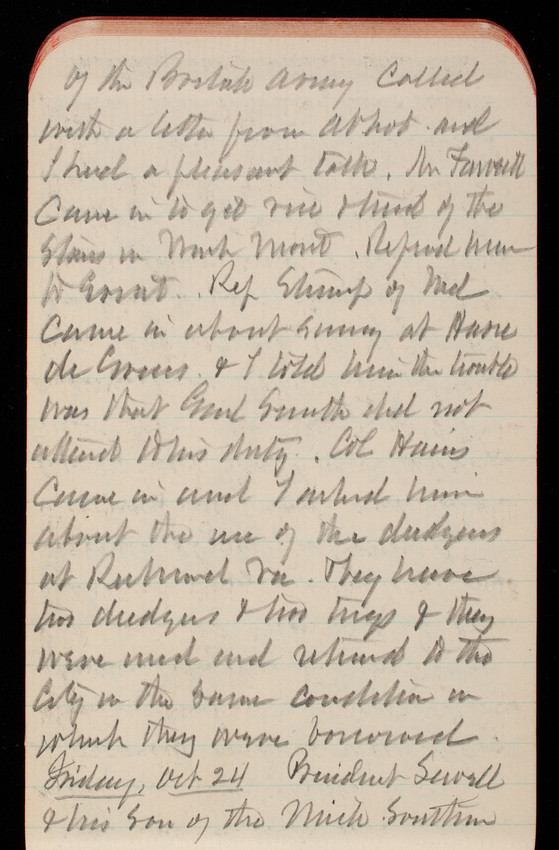 of the British Army called
with a letter from Abbot and
I had a pleasant talk. Mr Farwell
came in to get rid of the
stairs in Wash Mont. Refered him
to Grant. Rep Stump of Md
came in about Survey at Havre
de Grace & I told him the trouble
was that Genl Smith did not
attend to his duty. Col Hains
came in and I asked him
about the use of the dredgers
at Richmond Va. They have
two dredgers & two tugs & they
were used and returned to the
City in the same condition in
which they were borrowed.
Friday, Oct 24 President Sewell
& his son of the Mich Southern